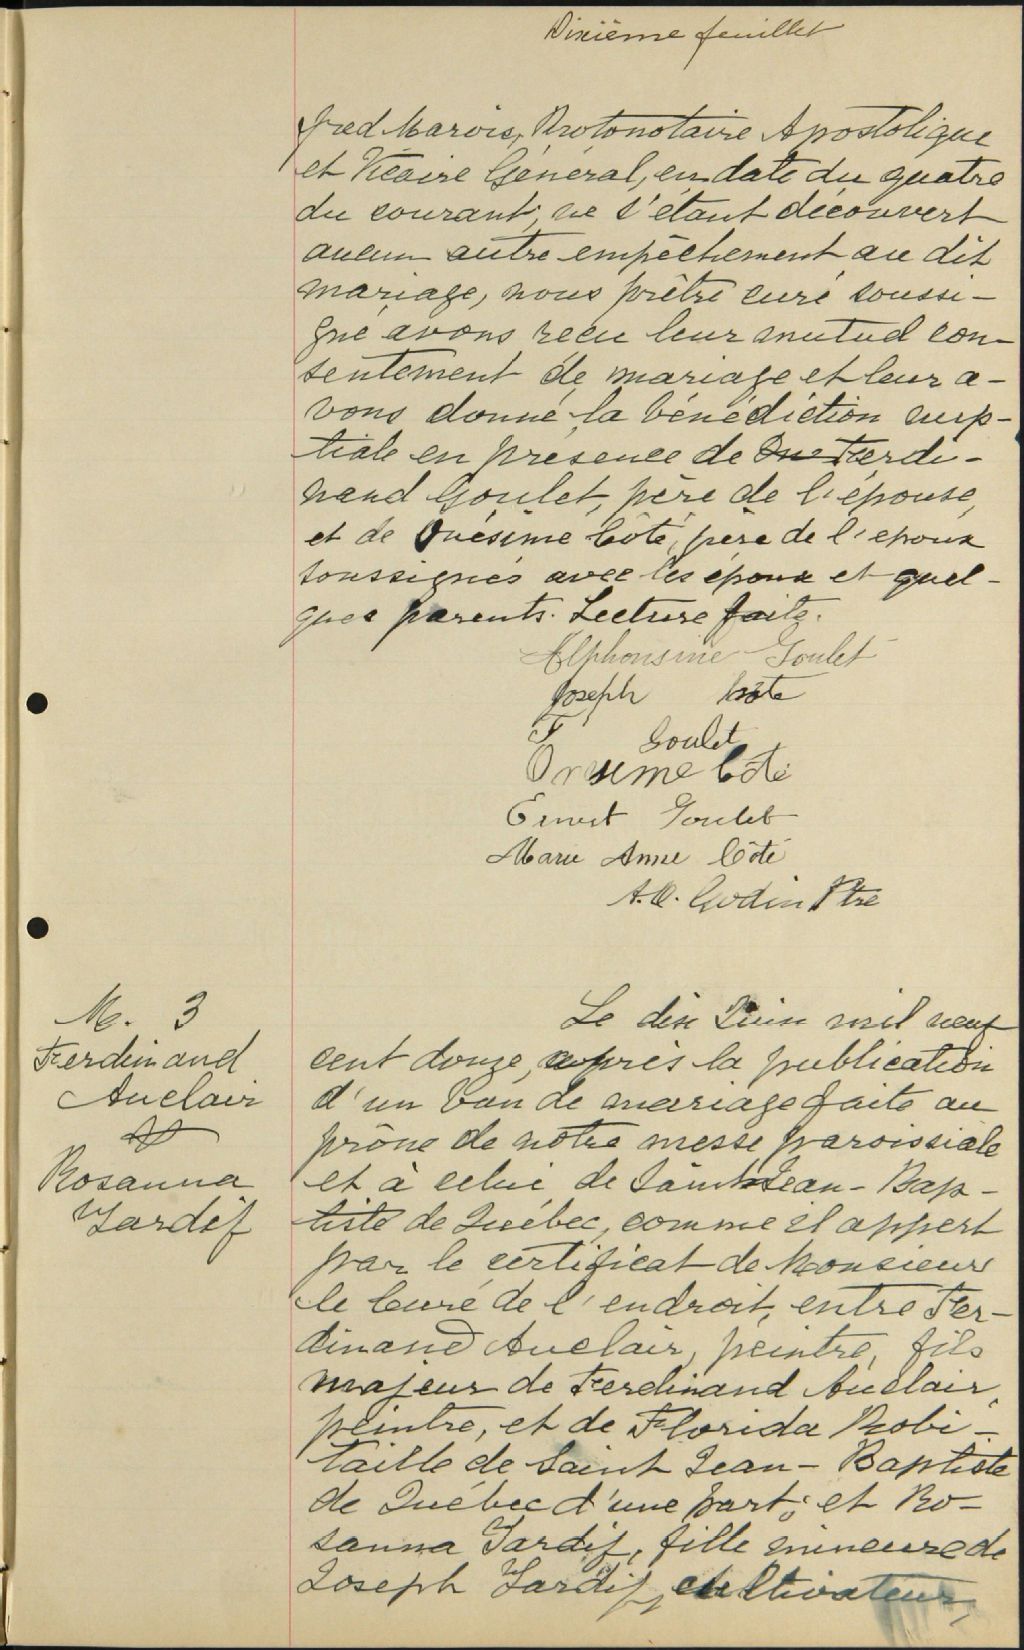 Dixième feuillet
fred Marois, Protonotaire Apostolique
et Vicaire Général, en date du quatre
du courant, ne s'étant découvert
aucun autre empêchement au dit
mariage, nous prêtre curé soussi-
gné avons reçu leur mutuel con-
sentement de mariage et leur a-
vons donné la bénédiction nup-
tiale en présence de Ferdi-
nand Goulet, père de l'épouse,
et de Onésime Côté, père de l'époux
soussignés avec les époux et quel-
ques parents. Lecture faite.
Alphonsine Goulet
Joseph Côté
F Goulet
Onesime Côté
Ernest Goulet
Marie Anne Côté
A.O. Godin Ptre
M. 3
Ferdinand
Auclair
&
Rosanna
Tardif
Le dix Juin mil neuf
cent douze, après la publication
d'un ban de mariage faite au
prône de notre messe paroissiale
et à celui de Saint Jean-Bap-
tiste de Québec, comme il appert
par le certificat de Monsieur
le Curé de l'endroit, entre Fer-
dinand Auclair, peintre, fils
majeur de Ferdinand Auclair,
peintre, et de Florida Robi-
taille de Saint Jean-Baptiste
de Québec d'une part; et Ro-
sanna Tardif, fille mineure de
Joseph Tardif, cultivateur,